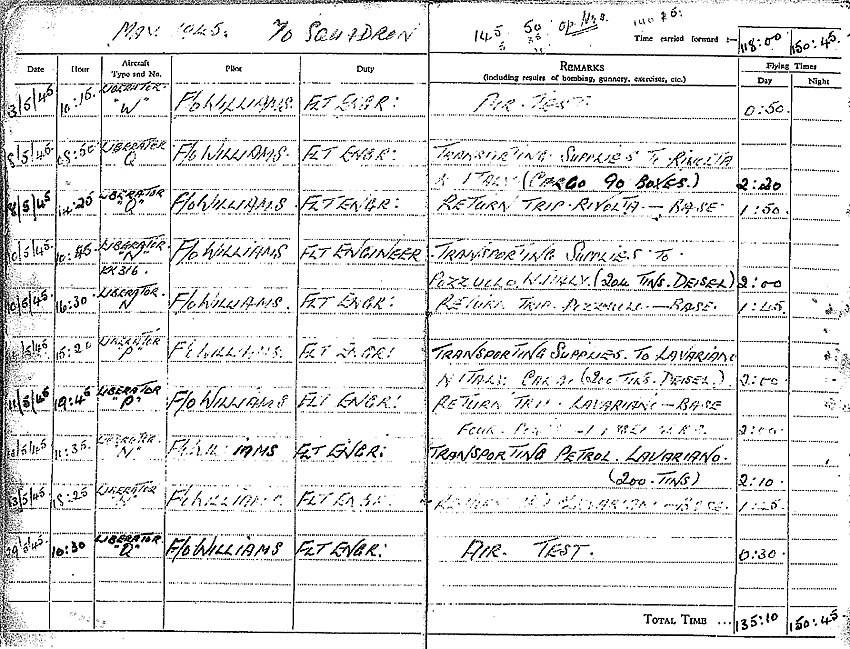 MAY 1945. 70 SQUADRON
145 50 Op Hrs.
Time carried forward :— 118:00 150:45.
Date Hour Aircraft Type and No. Pilot Duty REMARKS (including results of bombing, gunnery, exercises, etc.) Flying Times Day Night
3/5/45 10:15. LIBERATOR. "W" F/O WILLIAMS. FLT ENGR: AIR. TEST. 0:50.
8/5/45. 08:50 LIBERATOR Q F/O WILLIAMS. FLT ENGR: TRANSPORTING SUPPLIES TO RIVOLTA
N ITALY (CARGO 90 BOXES.) 2:20
8/5/45 14:25 LIBERATOR "Q" F/O WILLIAMS FLT ENGR: RETURN TRIP. RIVOLTA — BASE 1:50.
10/5/45. 10:45 LIBERATOR "N" F/O WILLIAMS FLT ENGINEER. TRANSPORTING SUPPLIES TO
KK316. (204 TINS. DEISEL) 2:00
10/5/45. 16:30 LIBERATOR. N F/O WILLIAMS. FLT ENGR: RETURN TRIP. — BASE. 1:45
15:20 LIBERATOR "P" F/O WILLIAMS. FLT ENGR: TRANSPORTING SUPPLIES. TO LAVARIANO
N ITALY. (200 TINS. DEISEL.) 2:00
11/5/45 19:45 LIBERATOR "P" F/O WILLIAMS FLT ENGR: RETURN TRIP. LAVARIANO — BASE
FOUR 2:00
11:35. LIBERATOR. "N" F/O WILLIAMS FLT ENGR: TRANSPORTING PETROL. LAVARIANO.
(200. TINS) 2:10.
13/5/45 18:25 LIBERATOR F/O WILLIAMS FLT ENGR: RETURN LAVARIANO — BASE. 1:25
29/5/45. 10:30 LIBERATOR "Q" F/O WILLIAMS FLT ENGR: AIR. TEST. 0:30.
TOTAL TIME ... 135:10 150:45